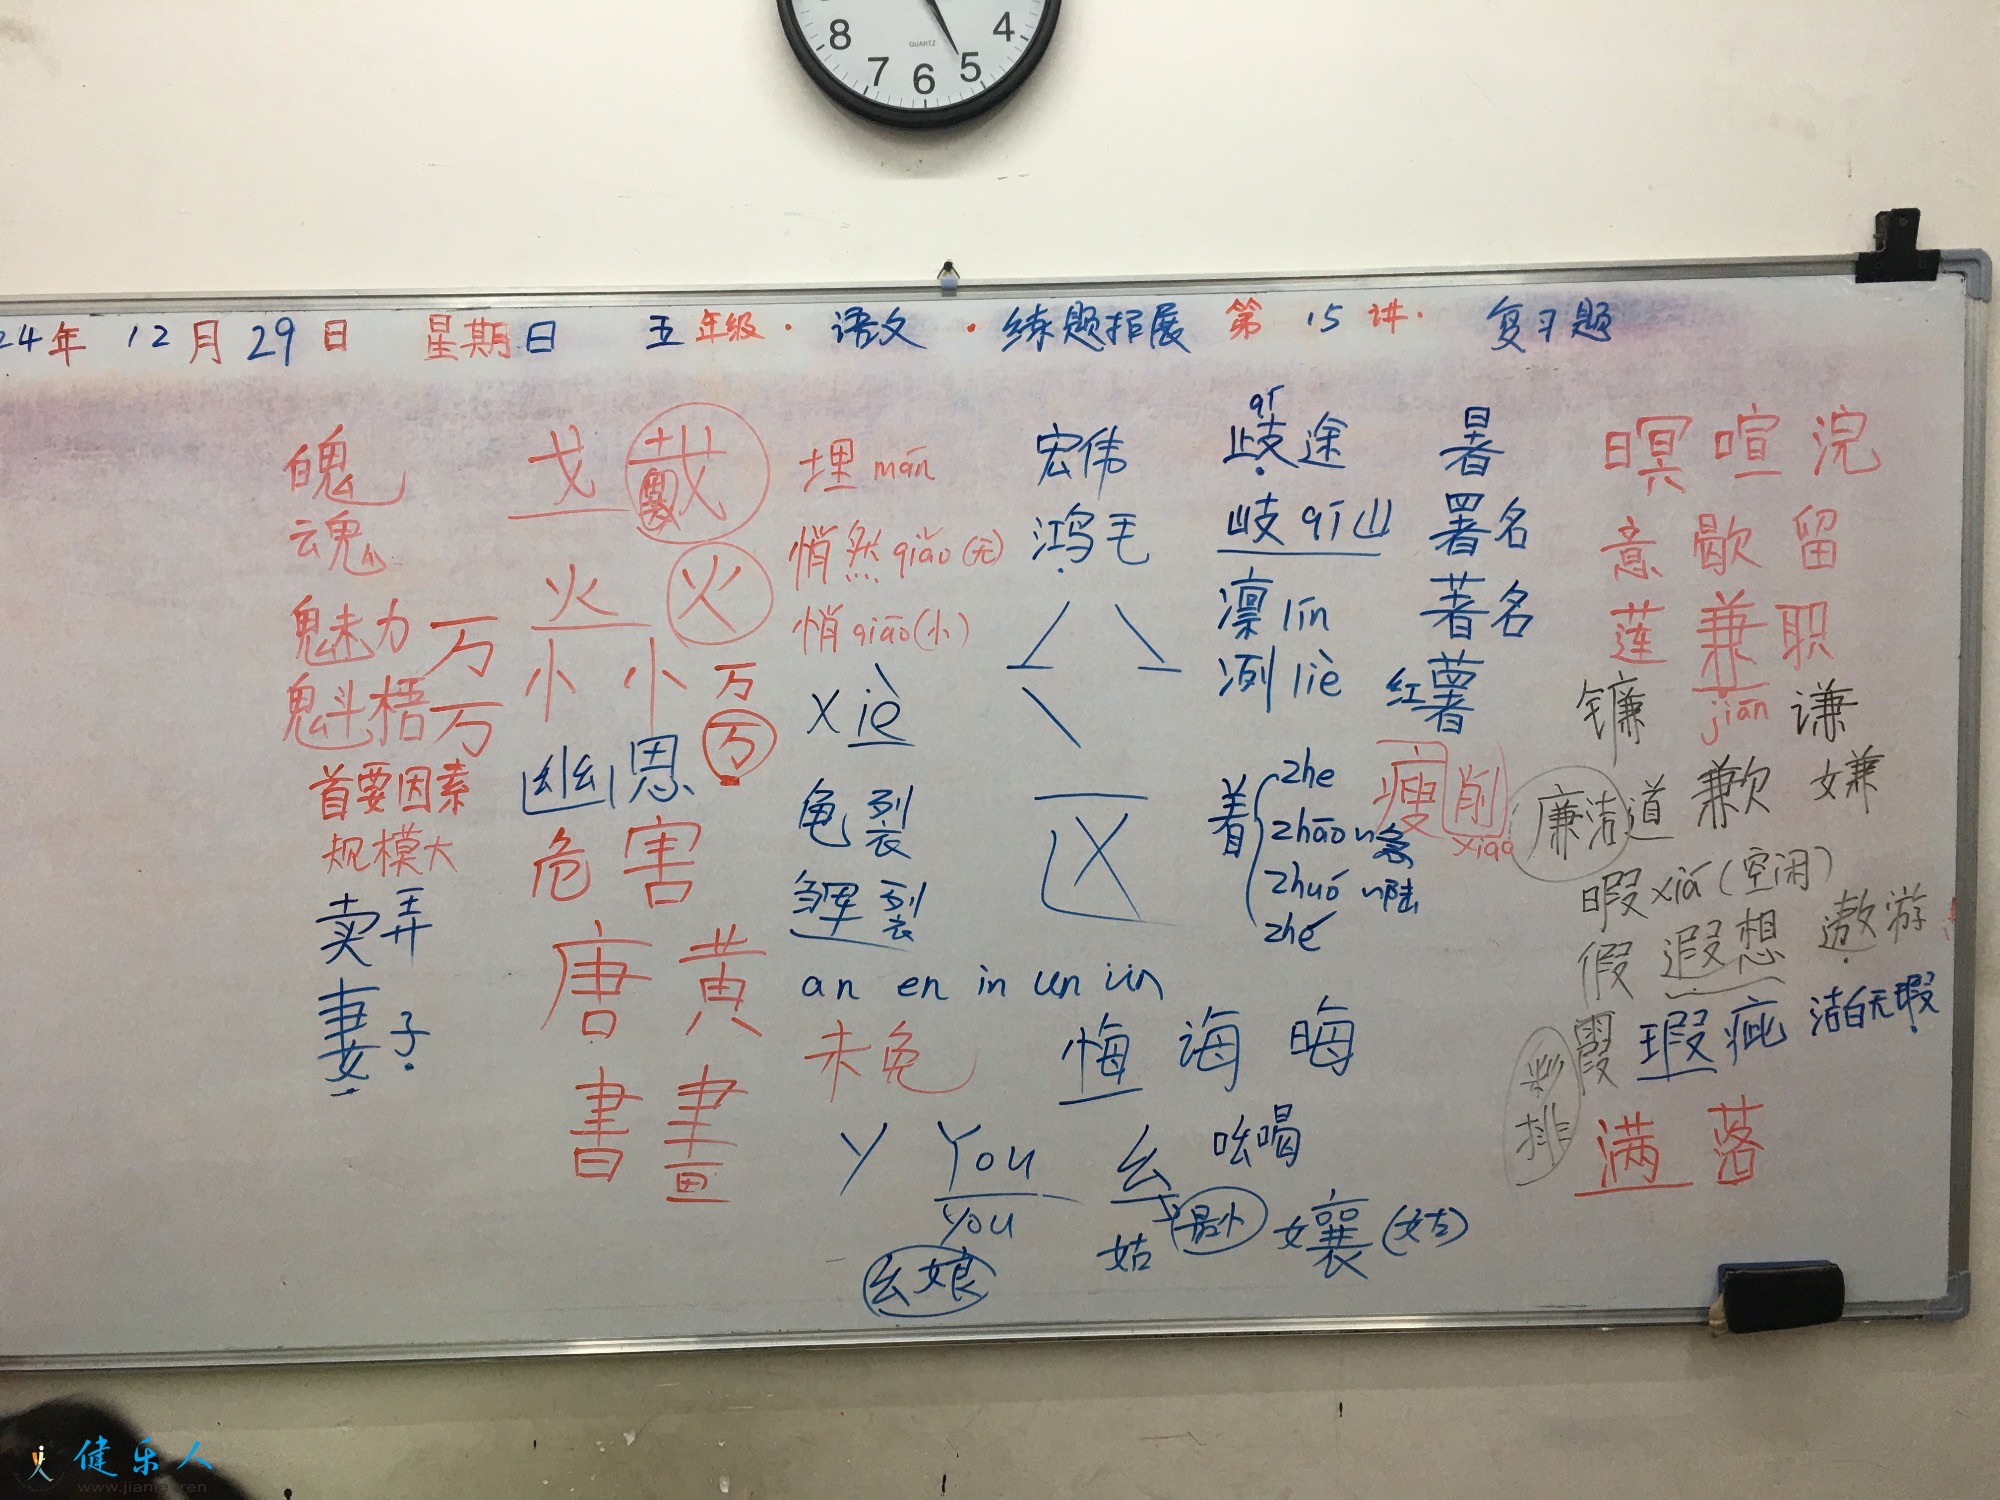 8 7 6 5 4
QUARTZ
24年 12月29日 星期日 五年级·语文·练题拓展 第15讲·复习题
魄
魂
魅力
魁梧
万
万
首要因素
规模大
卖弄
妻子
戈 戴
火 火
小 小 万
万
幽 思
危害
唐 黄
書 畫
埋 mán
悄然 qiǎo(无)
悄 qiāo(小)
xiè
龟裂
裂
an en in un ün
未免
Y You
you
幺娘
宏伟
鸿毛
区
悔 诲 晦
幺 吆喝
姑
孃(姑)
qí
歧途
岐 qí山
凛 lǐn
冽 liè
着
zhe
zhāo ~急
zhuó ~陆
zhé
暑
署名
著名
红薯
瘦削
xiao
暝 喧 浣
意 歇 留
莲 兼 职
镰 jiān 谦
廉洁 道 歉 嫌
暇 xiá(空闲)
假 遐想 遨游
霞 瑕疵 洁白无瑕
彩排
满 落
健乐人